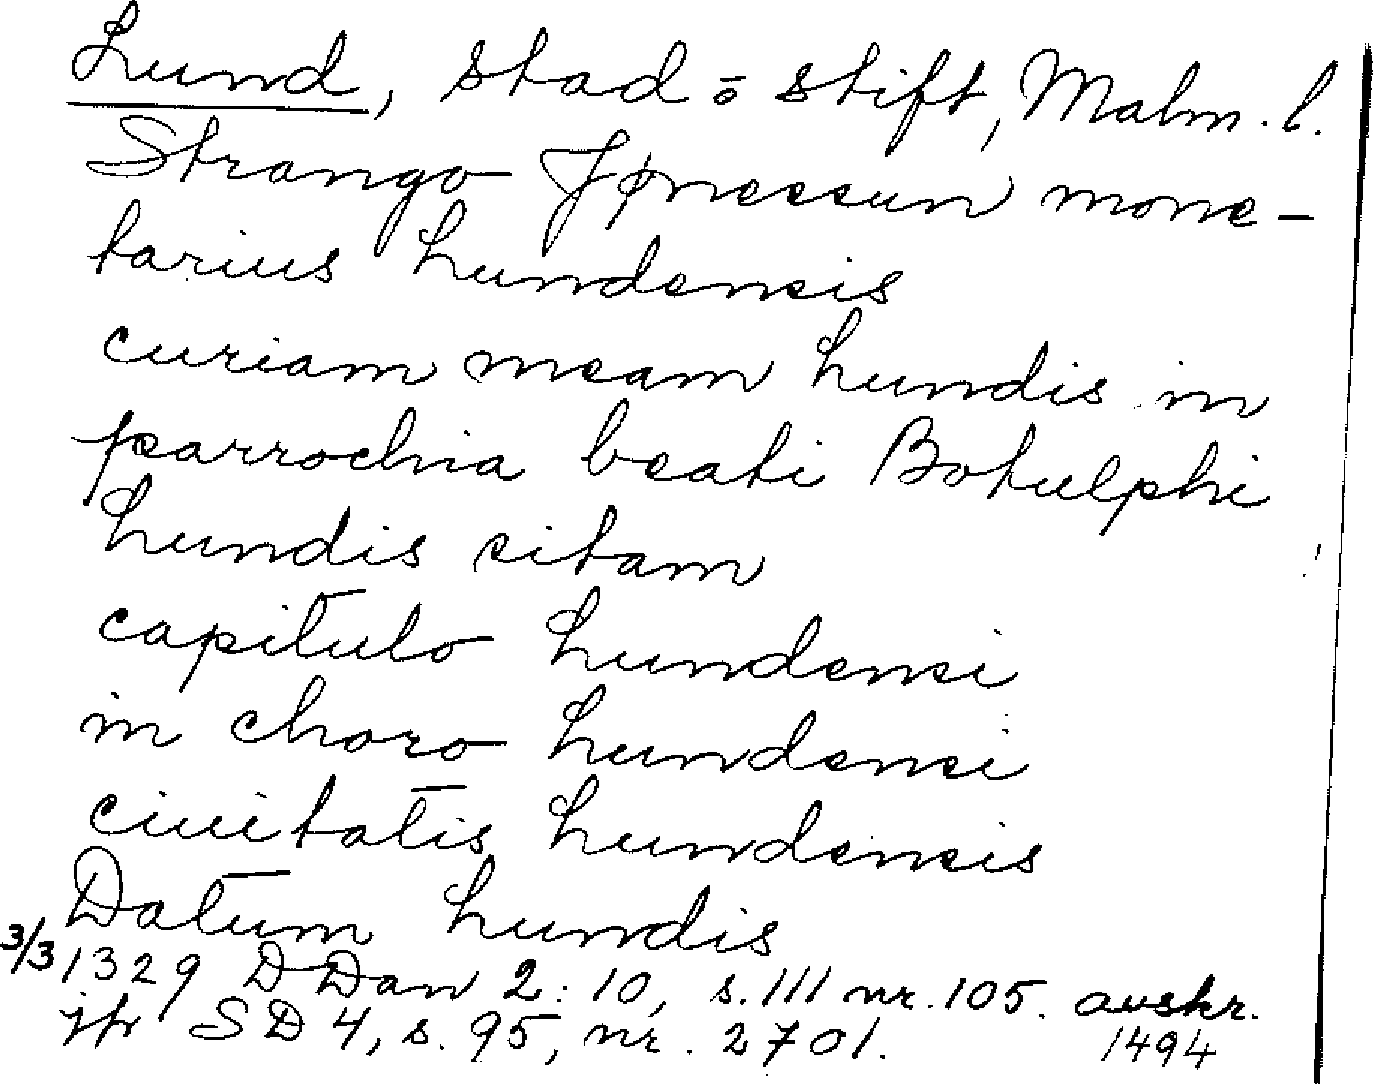 Lund, stad o stift, Malm. l.
Strango Jønessun mone-
tarius Lundensis
curiam meam Lundis in
parrochia beati Botulphi
Lundis sitam
capitulo Lundensi
in choro Lundensi
ciuitatis Lundensis
Datum Lundis
3/3 1329 DDan 2:10, s. 111 nr. 105. avskr.
jfr SD 4, s. 95, nr. 2701. 1494